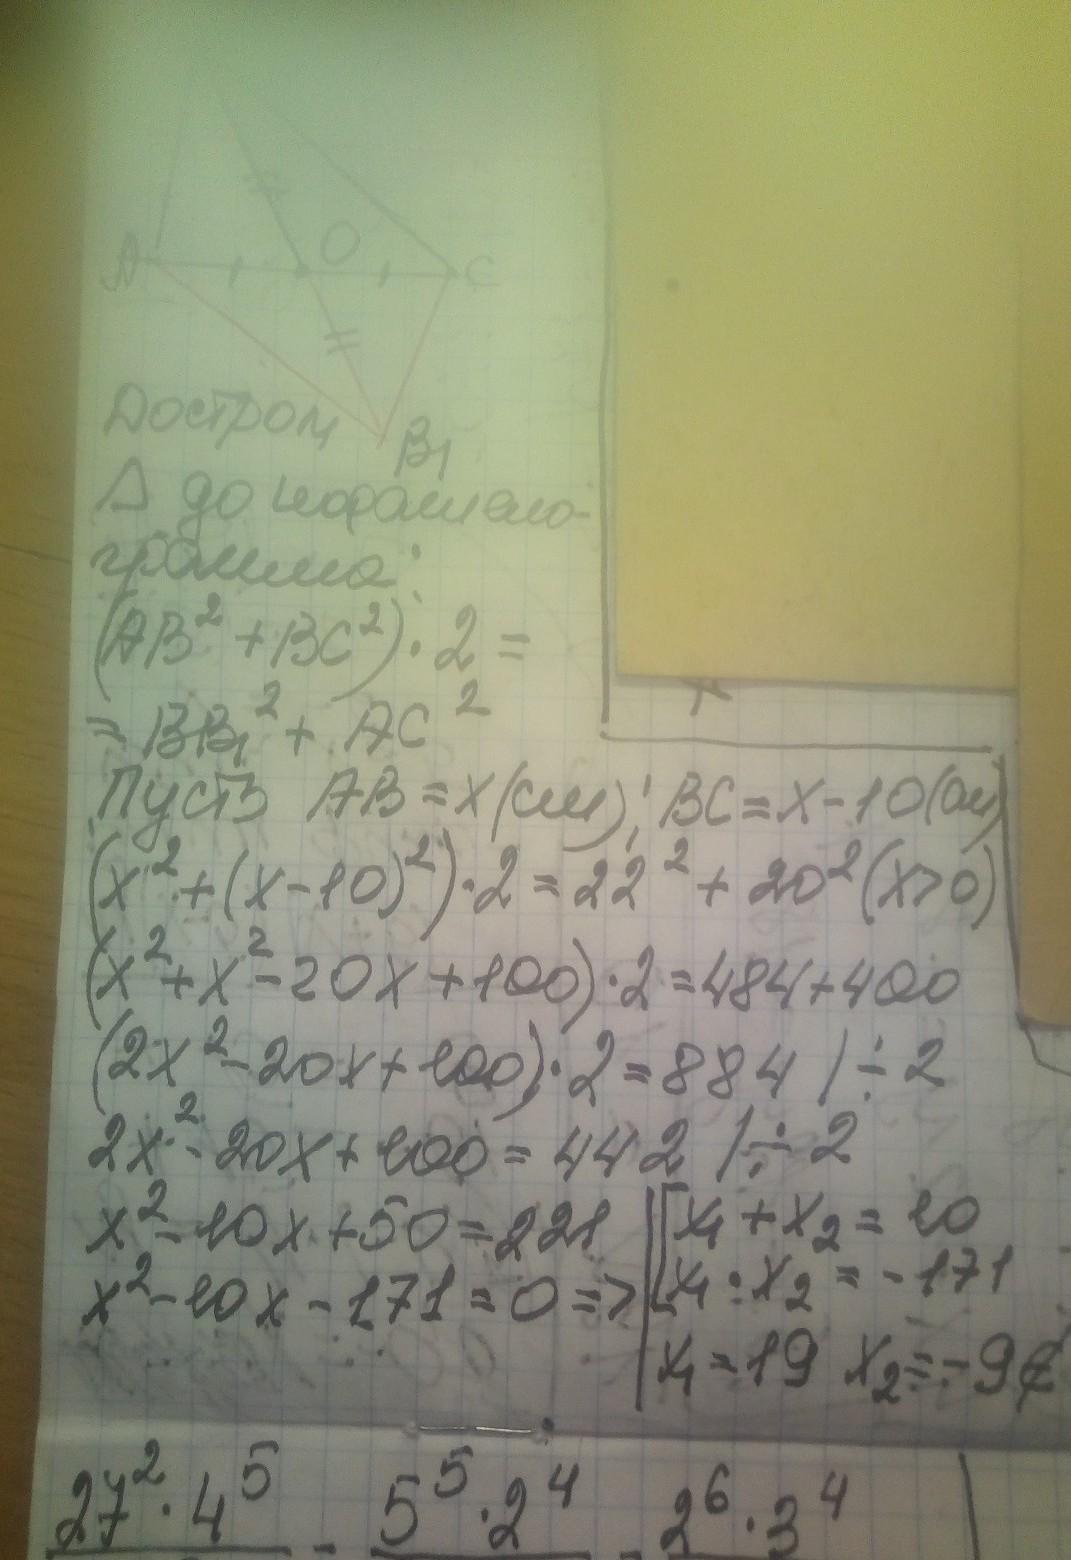 A O C
B₁
Достроим
Δ до паралело-
грамма:
(AB² + BC²) · 2 =
= BB₁² + AC²
Пусть AB = x (см); BC = x - 10 (см)
(x² + (x - 10)²) · 2 = 22² + 20² (x > 0)
(x² + x² - 20x + 100) · 2 = 484 + 400
(2x² - 20x + 100) · 2 = 884 / ÷ 2
2x² - 20x + 100 = 442 / ÷ 2
x² - 10x + 50 = 221
x² - 10x - 171 = 0 =>
[ x₁ + x₂ = 10
x₁ · x₂ = -171
x₁ = 19 x₂ = -9
27² · 4⁵ - 5⁵ · 2⁴ - 2⁶ · 3⁴